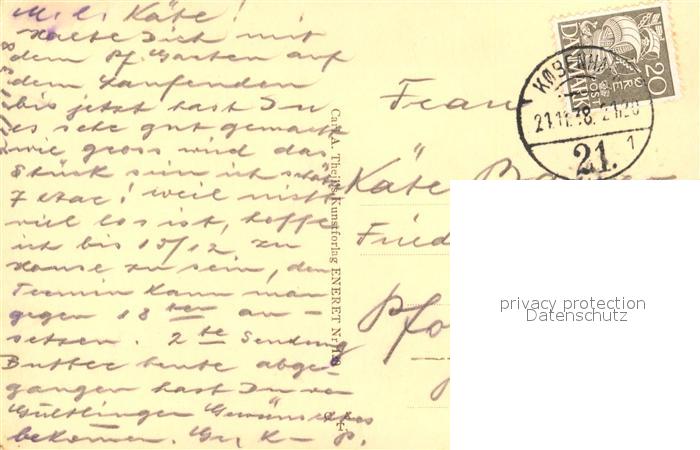 M. l. Käte!
Halte Dich mit
dem Pf. Garten auf
dem Laufenden
bis jetzt hast Du
es sehr gut gemacht
wie gross wird das
Stück sein ich schätz
7 etac! weil nicht
viel los ist, hoffe
ich bis 15/12 zu
Hause zu sein, den
Termin kann man
gegen 18 ten an-
setzen. 2 te Sendung
Butter heute abge-
gangen hast Du von
Gültlingen
bekommen. Gr. K - P.
Carl A. Thejl's Kunstforlag ENERET Nr.
Frau
Käte
Fried
Pfo
KØBENHA
21.11.38. 21-20
21. 1
DANMARK
POST
ØRE
20
privacy protection
Datenschutz